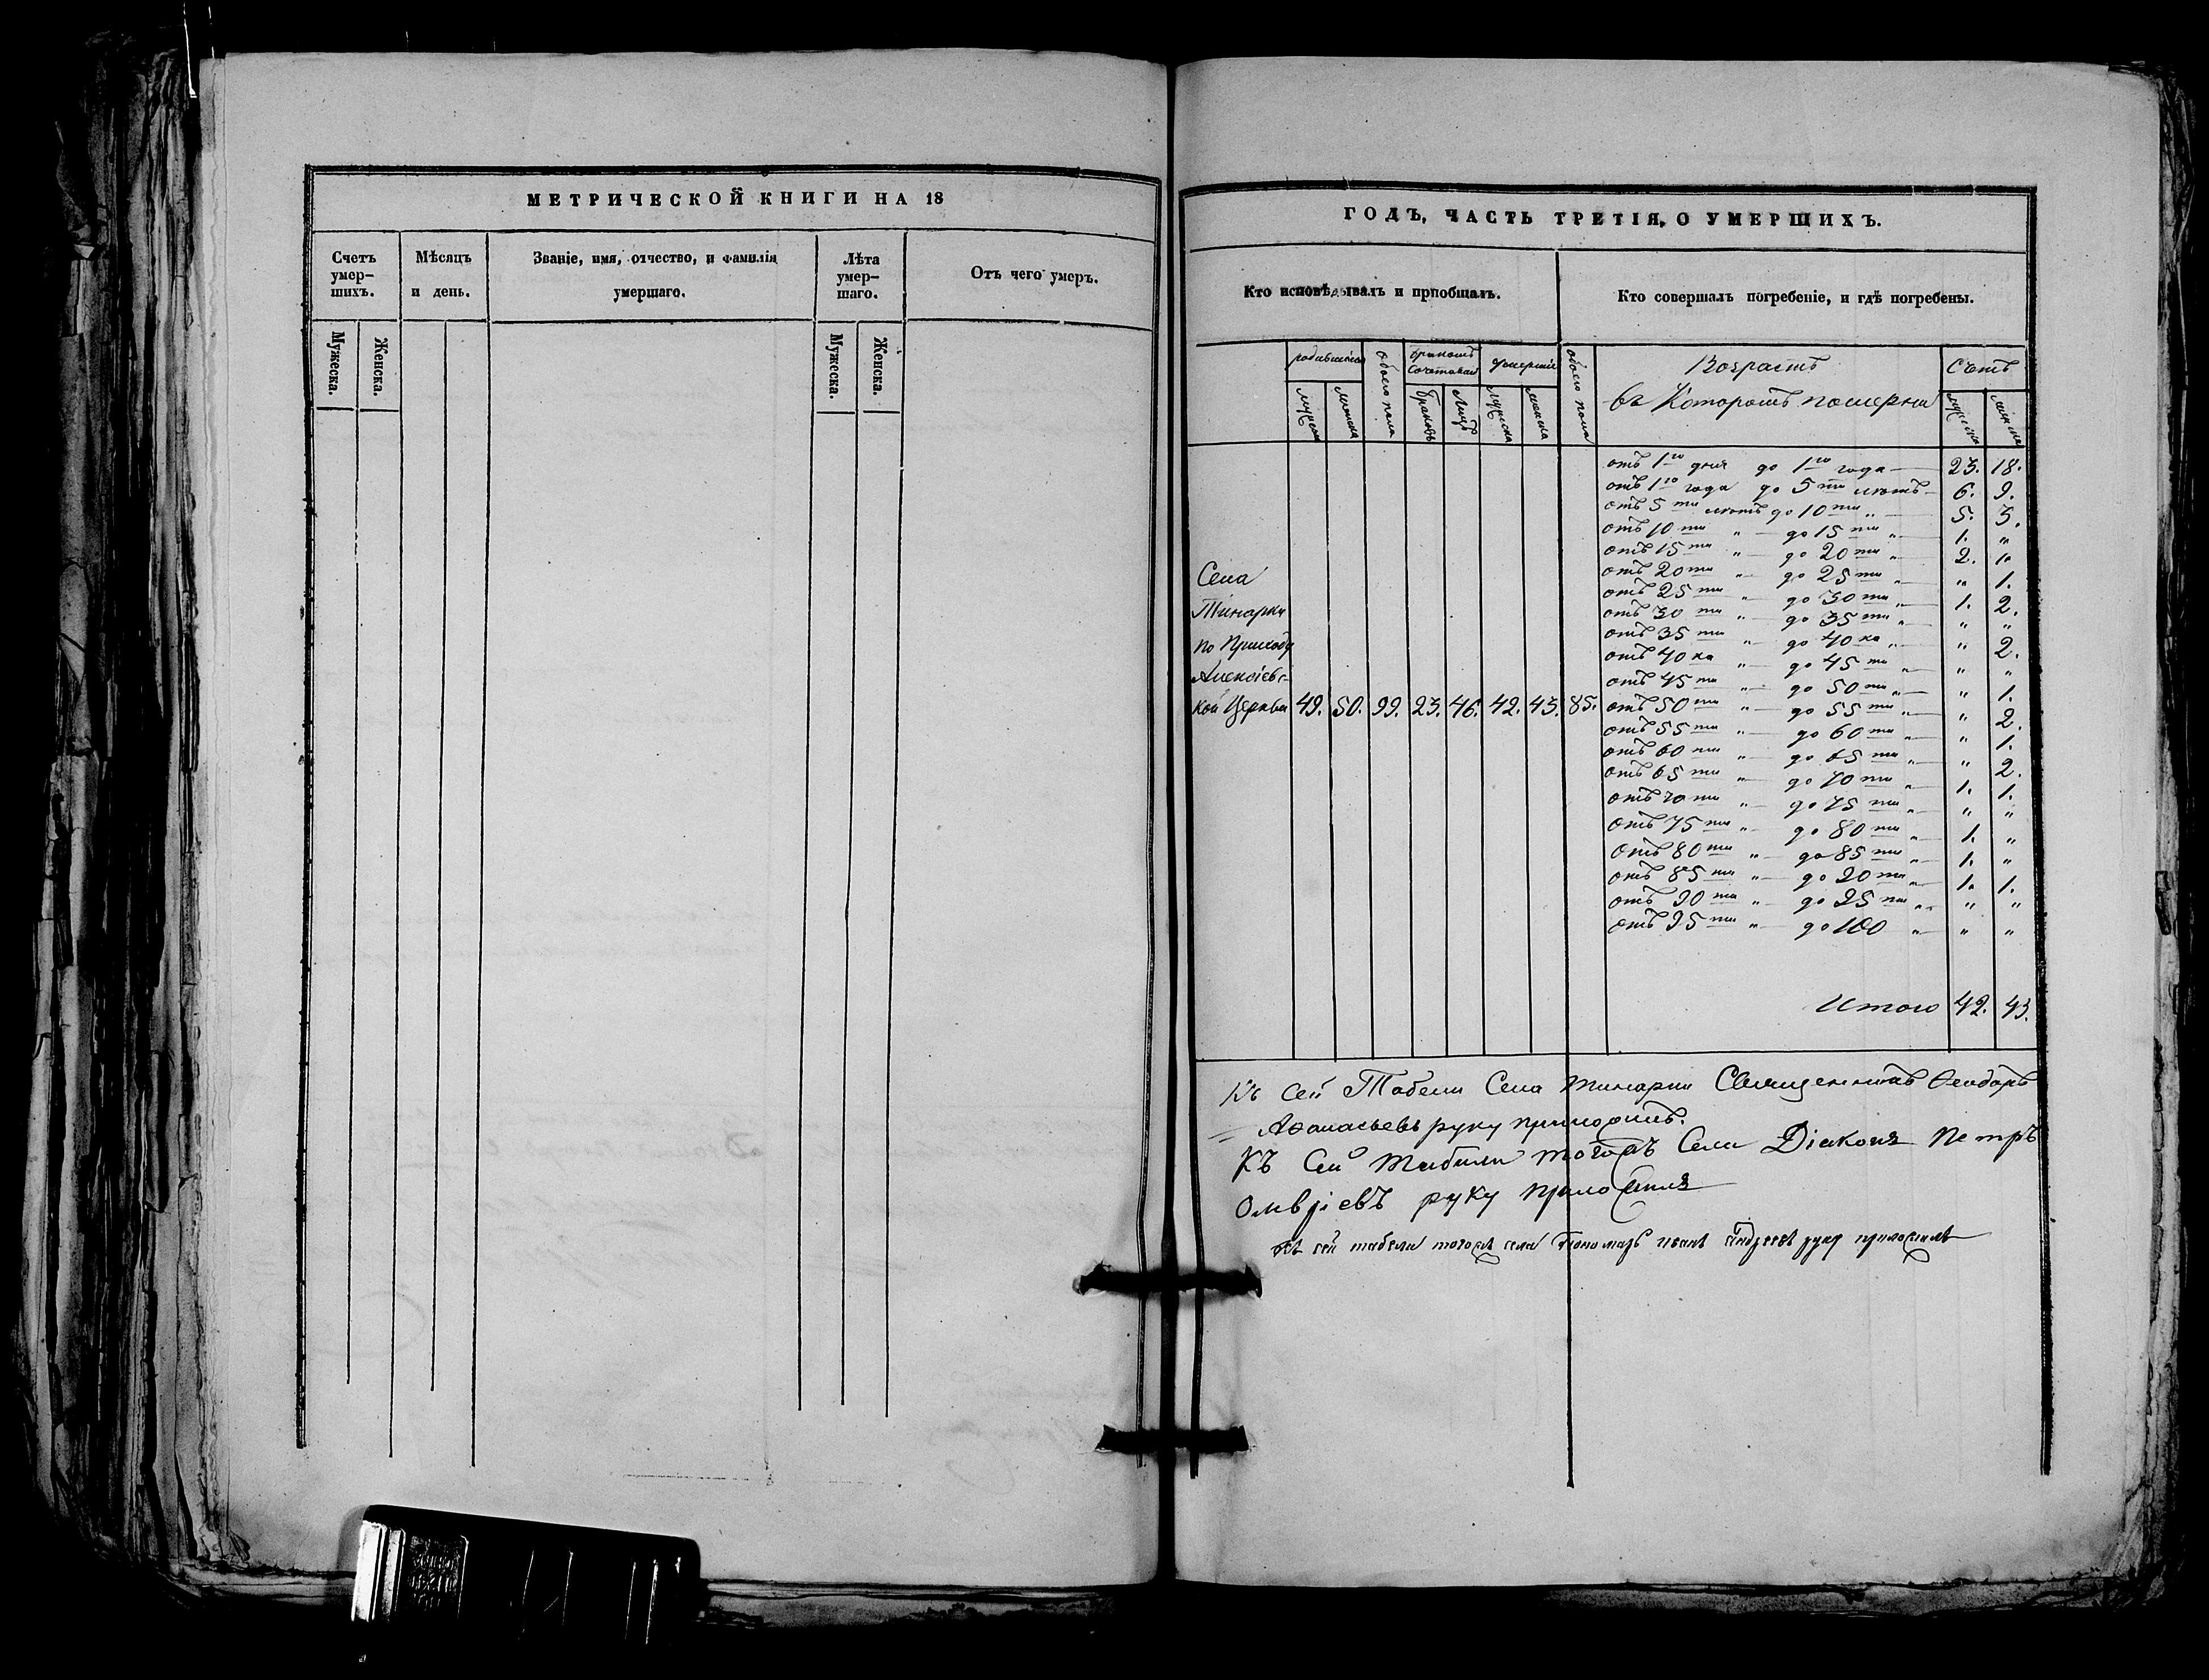 МЕТРИЧЕСКОЙ КНИГИ НА 18
Счетъ умер-шихъ.
Мѣсяцъ и день.
Званіе, имя, отчество, и фамилія умершаго.
Лѣта умер-шаго.
Отъ чего умеръ.
Мужеска.
Женска.
Мужеска.
Женска.
ГОДЪ, ЧАСТЬ ТРЕТІЯ, О УМЕРШИХЪ.
Кто исповѣдывалъ и пріобщалъ.
Кто совершалъ погребеніе, и гдѣ погребены.
родившіеся
обоего пола
бракомъ сочетован
умершіе
обоего пола
Возрастъ
въ Которомъ померли
Счетъ
мужеска
женска
браковъ
Лицъ
мужеска
женска
мужеска
женска
отъ 1го дня до 1го года 23. 18.
отъ 1го года до 5ти лѣтъ 6. 9.
отъ 5ти лѣтъ до 10ти „ 5. 3.
отъ 10ти „ до 15ти „ 1. „
отъ 15ти „ до 20ти „ 2. 1.
отъ 20ти „ до 25ти „ „ 1.
отъ 25ти „ до 30ти „ 1. 2.
отъ 30ти „ до 35ти „ „ „
отъ 35ти „ до 40ка „ „ 2.
отъ 40ка „ до 45ти „ „ „
отъ 45ти „ до 50ти „ „ 1.
отъ 50ти „ до 55ти „ „ 2.
отъ 55ти „ до 60ти „ „ 1.
отъ 60ти „ до 65ти „ „ 2.
отъ 65ти „ до 70ти „ 1. 1.
отъ 70ти „ до 75ти „ „ „
отъ 75ти „ до 80ти „ 1. „
отъ 80ти „ до 85ти „ 1. „
отъ 85ти „ до 90ти „ 1. 1.
отъ 90ти „ до 95ти „ „ „
отъ 95ти „ до 100 „ „ „
Села
Тинарки
по Приходу
Алексіевс-
кой Церкви 49. 50. 99. 23. 46. 42. 43. 85.
Итого 42. 43.
Къ сей Табели Села Тинарки Священникъ Ѳеодоръ
Аѳанасьевъ руку приложилъ.
Къ Сей табели тогожъ Села Діаконъ Петръ
руку приложилъ
Къ сей табели тогожъ села Пономарь иванъ Андреевъ руку приложилъ